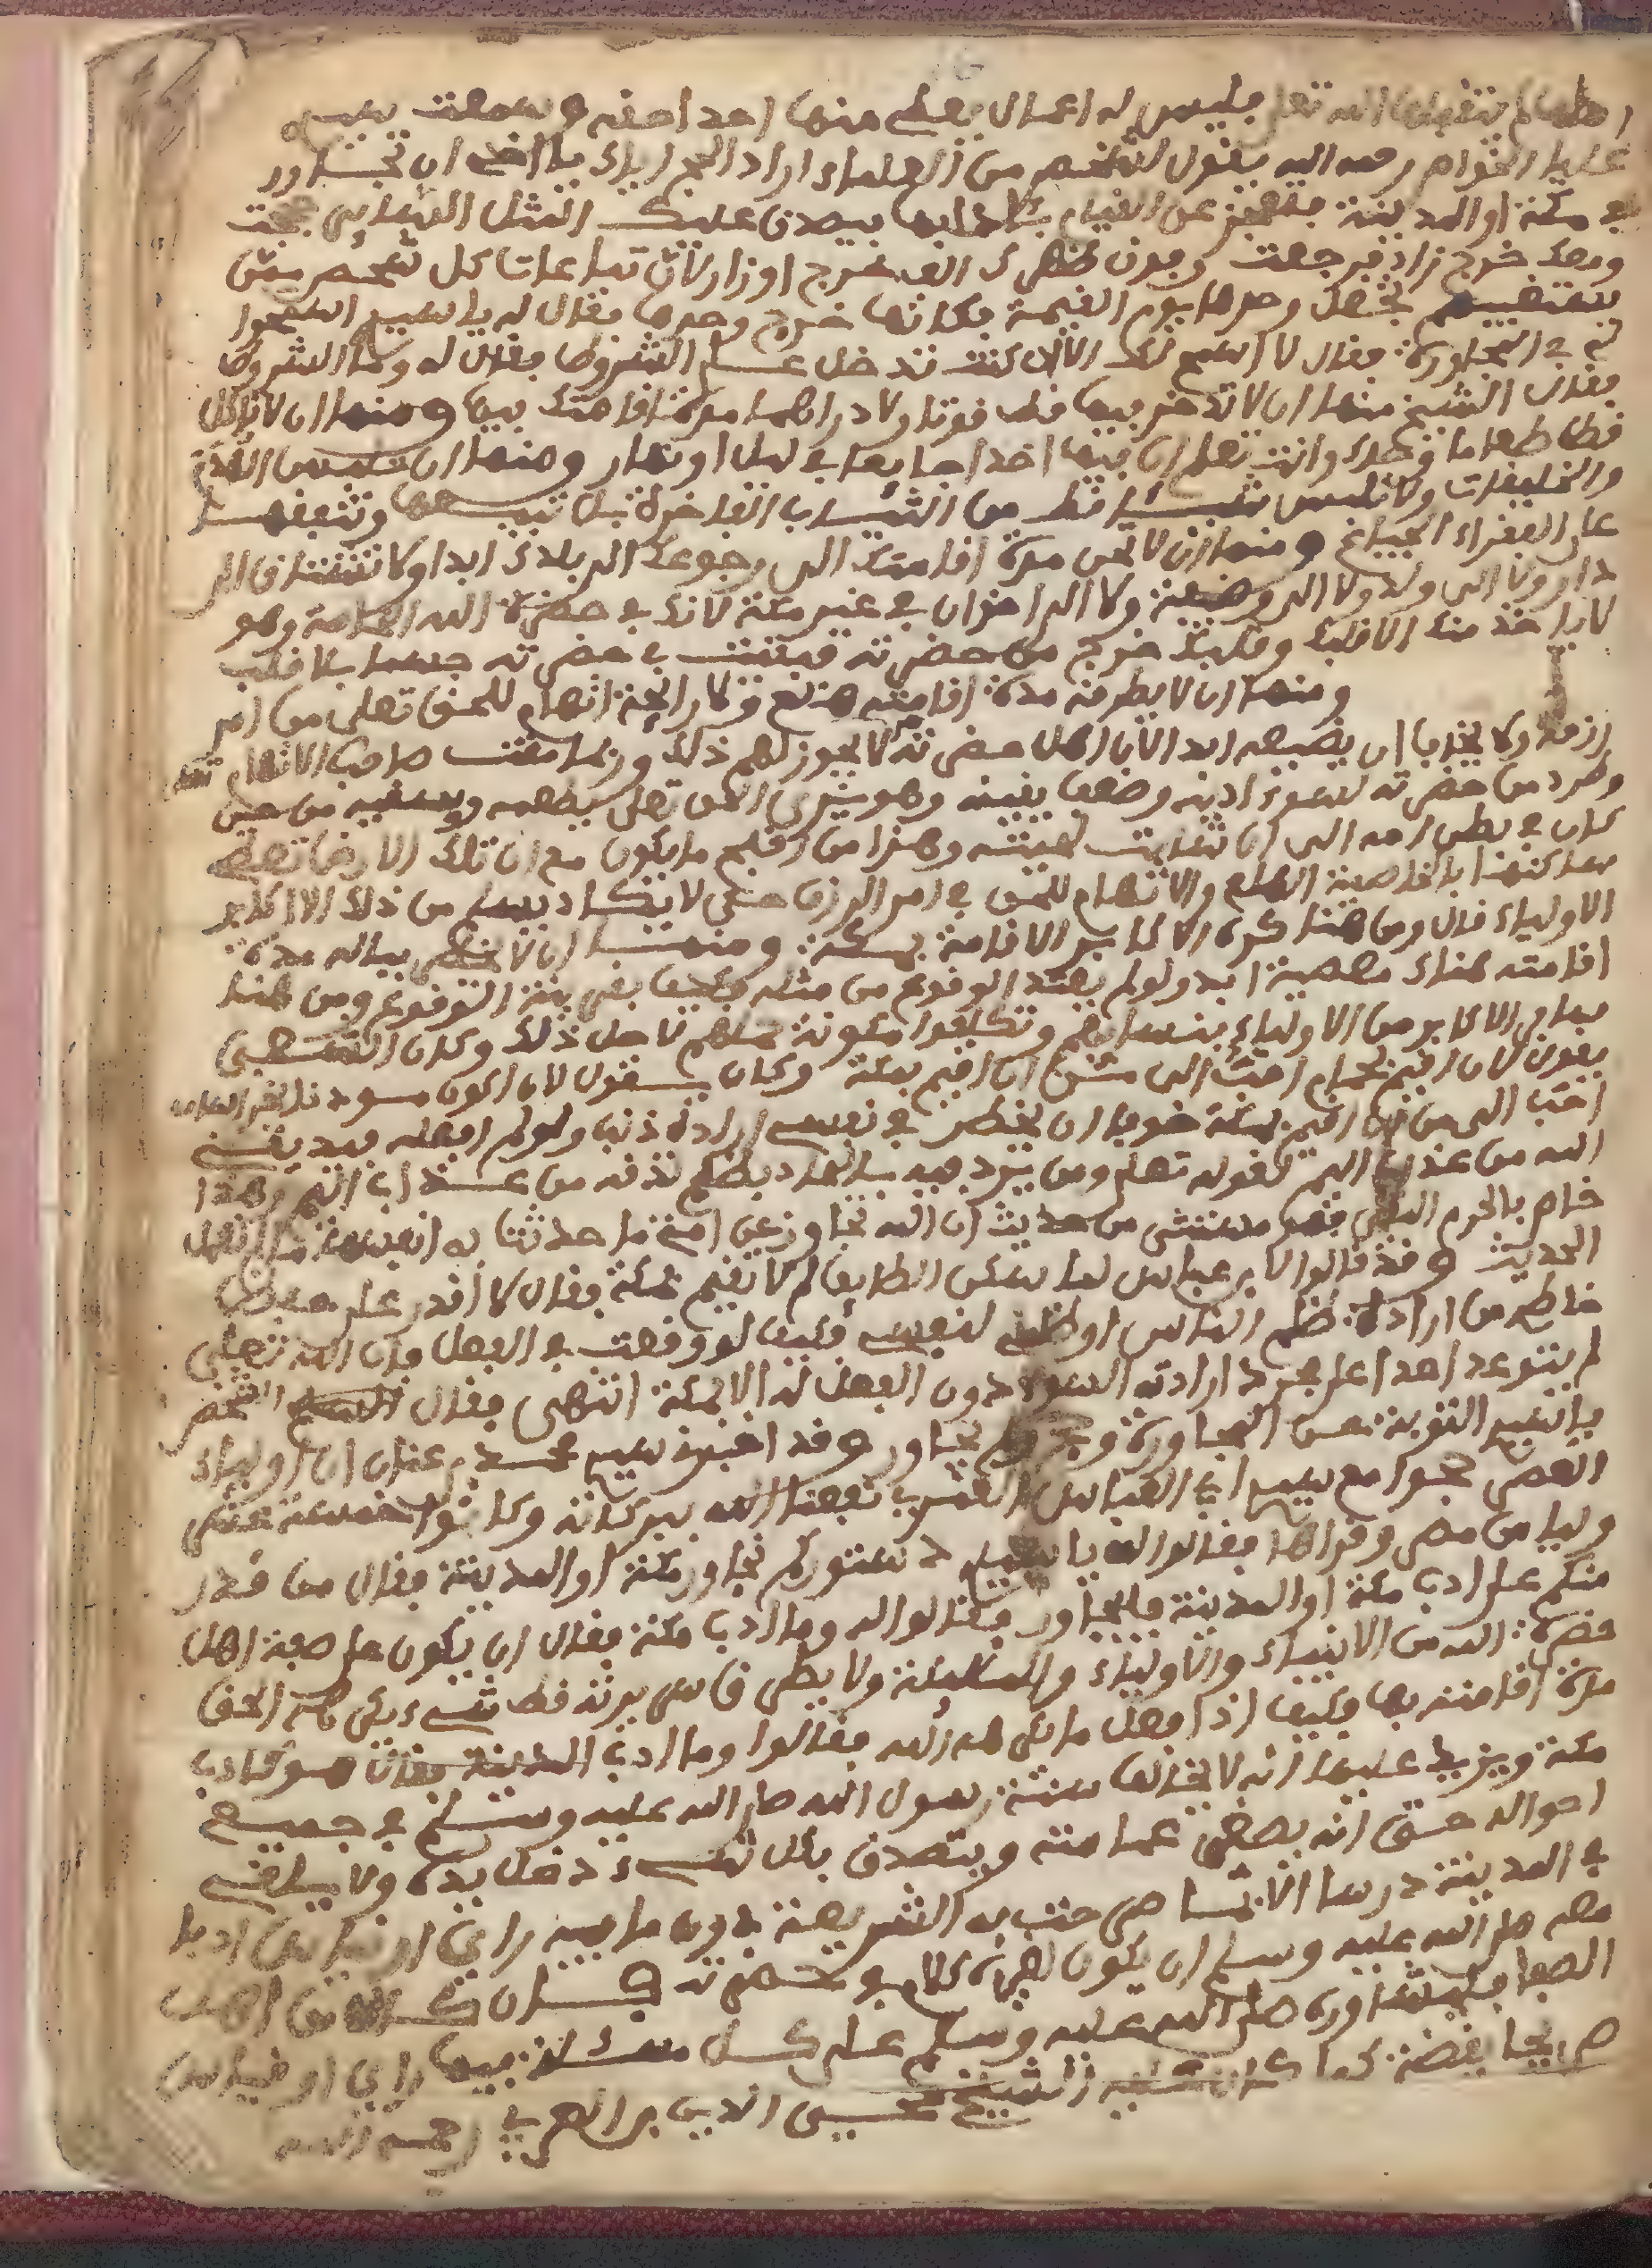 فليس له اعمال يعطى منها احد احقه و سمعت سيدي
عليا الخواص رحمه الله يقول لشخص من العلماء اراد الحج اياك يا اخي ان تجاور
في مكة او المدينة فتعجز عن القيام بآدابها فيصدق عليك المثل السائر حججت
ومعك خرج زاد فرجعت وفوق ظهرك الف خرج اوزار لان تبعات كل شخص
تجعل وحدها يوم القيمة فكانها خرج وحدها فقال له يا سيدي
في المجاورة فقال لا اسمح لك الا ان كنت تدخل على الشروط فقال له وما الشروط
فقال الشيخ منها ان لا تدخر فيها قط قوتا ولا دراهم مدة اقامتك فيها ومنها ان لا تاكل
قط طعاما وحدك وانت تعلم ان فيها احدا جايعا في ليل او نهار ومنها ان تلبس
والخليقات ولا تلبس شيئا قط من الثياب الفاخرة بل تبيعها وتنفقها
على الفقراء الجياع ومنها ان لا تحن مدة اقامتك الى رجوعك الى بلادك ابدا ولا تشتاق الى
دار ولا الى ولد ولا الى وظيفة ولا الى اخوان في غير مكة لانك في حضرة الله الخاصة وهو
لا ياخذ منك الا قلبك وقلبك خرج من حضرته فبقيت في حضرته جسما بلا قلب
ومنها ان لا يطرقه مدة اقامته هلع ولا رايحة اتهام للحق تعلى من امر
رزقه ولا يخاف ان يضيعه ابدا لان اهل حضرته لا يجوز لهم ذلك وربما مقت صاحب الاتهام
وطرد من حضرته لسوء ادبه وضعف يقينه وهو يرى الحق تعلى يطعمه ويسقيه من حين
كان في بطن امه الى ان شابت لحيته وهذا من اقبح ما يكون مع ان تلك الارض تعطي
ساكنها بالخاصية الهلع والاتهام للحق في امر الرزق حتى لا يكاد يسلم من ذلك الا اكابر
الاولياء قال ومن هنا كره الاكابر الاقامة بمكة ومنها ان لا يخطر بباله مدة
اقامته هناك معصية ابدا ولو لم يقتد الوقوع من مثله فكيف بقريبة الوقوع ومن هنا
سافر الاكابر من الاولياء بنسائهم وتكلفوا مئونة حملهم لاجل ذلك وكان الشعبي
يقول لان اقيم بحمام احب الى من ان اقيم بمكة وكان يقول لان اكون
احب الى من ان اقيم بمكة خوفا ان يخطر في نفسي ارادة ذنب ولو لم افعله فيذيقني
الله من عذاب اليم لقوله تعلى ومن يرد فيه بالحاد بظلم نذقه من عذاب اليم وهذا
خاص بالحرم المكي فهو مستثنى من حديث ان الله تجاوز عن امتي ما حدثت به انفسها ما لم تعمل
الحديث وقد قالوا لابن عباس لما سكن الطايف لم لا تقيم بمكة فقال لا اقدر على
خاطر من ارادة ظلم الناس او ظلم لنفسي فكيف لو وقعت في الفعل فان الله تعلى
لم يتوعد احدا على مجرد ارادته السوء دون الفعل له الا بمكة انتهى فقال الشخص
يا سيدي التوبة عن المجاورة وحج ولم يجاور وقد اخبرني سيدي محمد بن عنان ان اولياء
العصر حجوا مع سيدي ابي العباس نفعنا الله ببركاته وكانوا خمسة عشر
وليا من مصر وقراها فقالوا له يا سيدي دستوركم نجاور مكة او المدينة فقال من قدر
منكم على ادب مكة او المدينة فليجاور فقالوا له وما ادب مكة فقال ان يكون على صفة اهل
حضرة الله من الانبياء والاولياء والملائكة ولا يطرق سريرته قط شيء يكرهه الحق
مدة اقامته بها فكيف اذا فعل ما يكرهه الله فقالوا وما ادب المدينة فقال هو كادب
مكة ويزيد عليها انه لا يخالف سنة رسول الله صلى الله عليه وسلم في جميع
احواله حتى انه يصغر عمامته ويتصدق بكل شيء دخل يده ولا يلقي
في المدينة درسا الا بما صرحت به الشريعة دون ما فيه راي او قياس ادبا
معه صلى الله عليه وسلم ان يكون لغيره كلام في حضرته فان كان من اهل
الصفا فليشاوره صلى الله عليه وسلم على كل مسئلة فيها راي او قياس
كما كان عليه الشيخ محيي الدين بن العربي رحمه الله